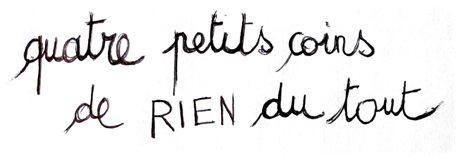 quatre petits coins
de RIEN du tout